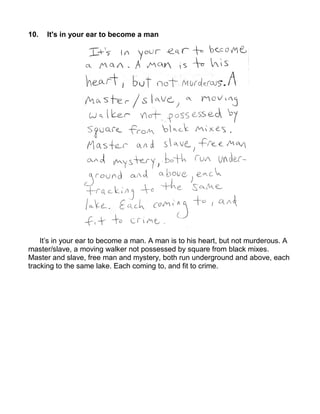 10. It's in your ear to become a man
It's in your ear to become
a man. A man is to his
heart, but not murderous. A
Master/slave, a moving
walker not possessed by
square from black mixes.
Master and slave, free man
and mystery, both run under-
ground and above, each
tracking to the same
lake. Each coming to, and
fit to crime.
It's in your ear to become a man. A man is to his heart, but not murderous. A
master/slave, a moving walker not possessed by square from black mixes.
Master and slave, free man and mystery, both run underground and above, each
tracking to the same lake. Each coming to, and fit to crime.